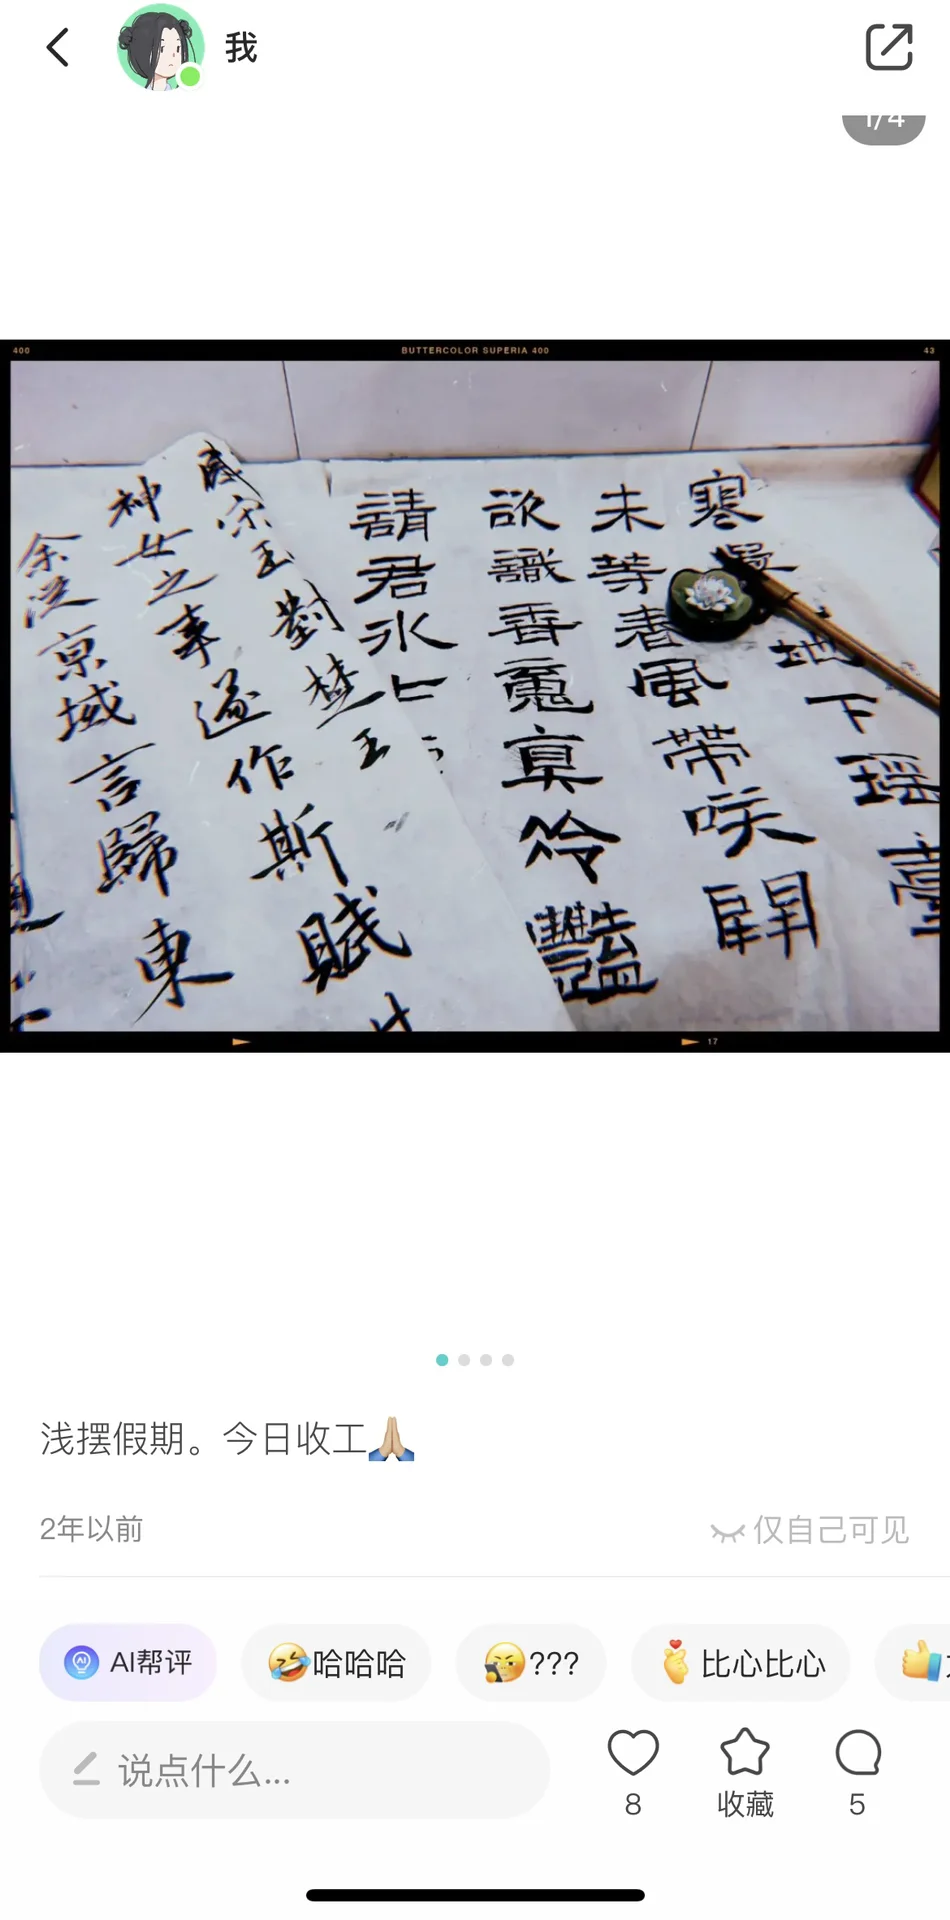 我
1/4
400
BUTTERCOLOR SUPERIA 400
43
寒地下瑶臺
未等風帶咲開
欲識香魂真冷豔
請君氷上
感宋玉對楚王
神女之事遂作斯賦
余從京域言歸東
17
浅摆假期。今日收工🙏🏼
2年以前
仅自己可见
AI帮评
🤣哈哈哈
???
比心比心
说点什么...
8
收藏
5